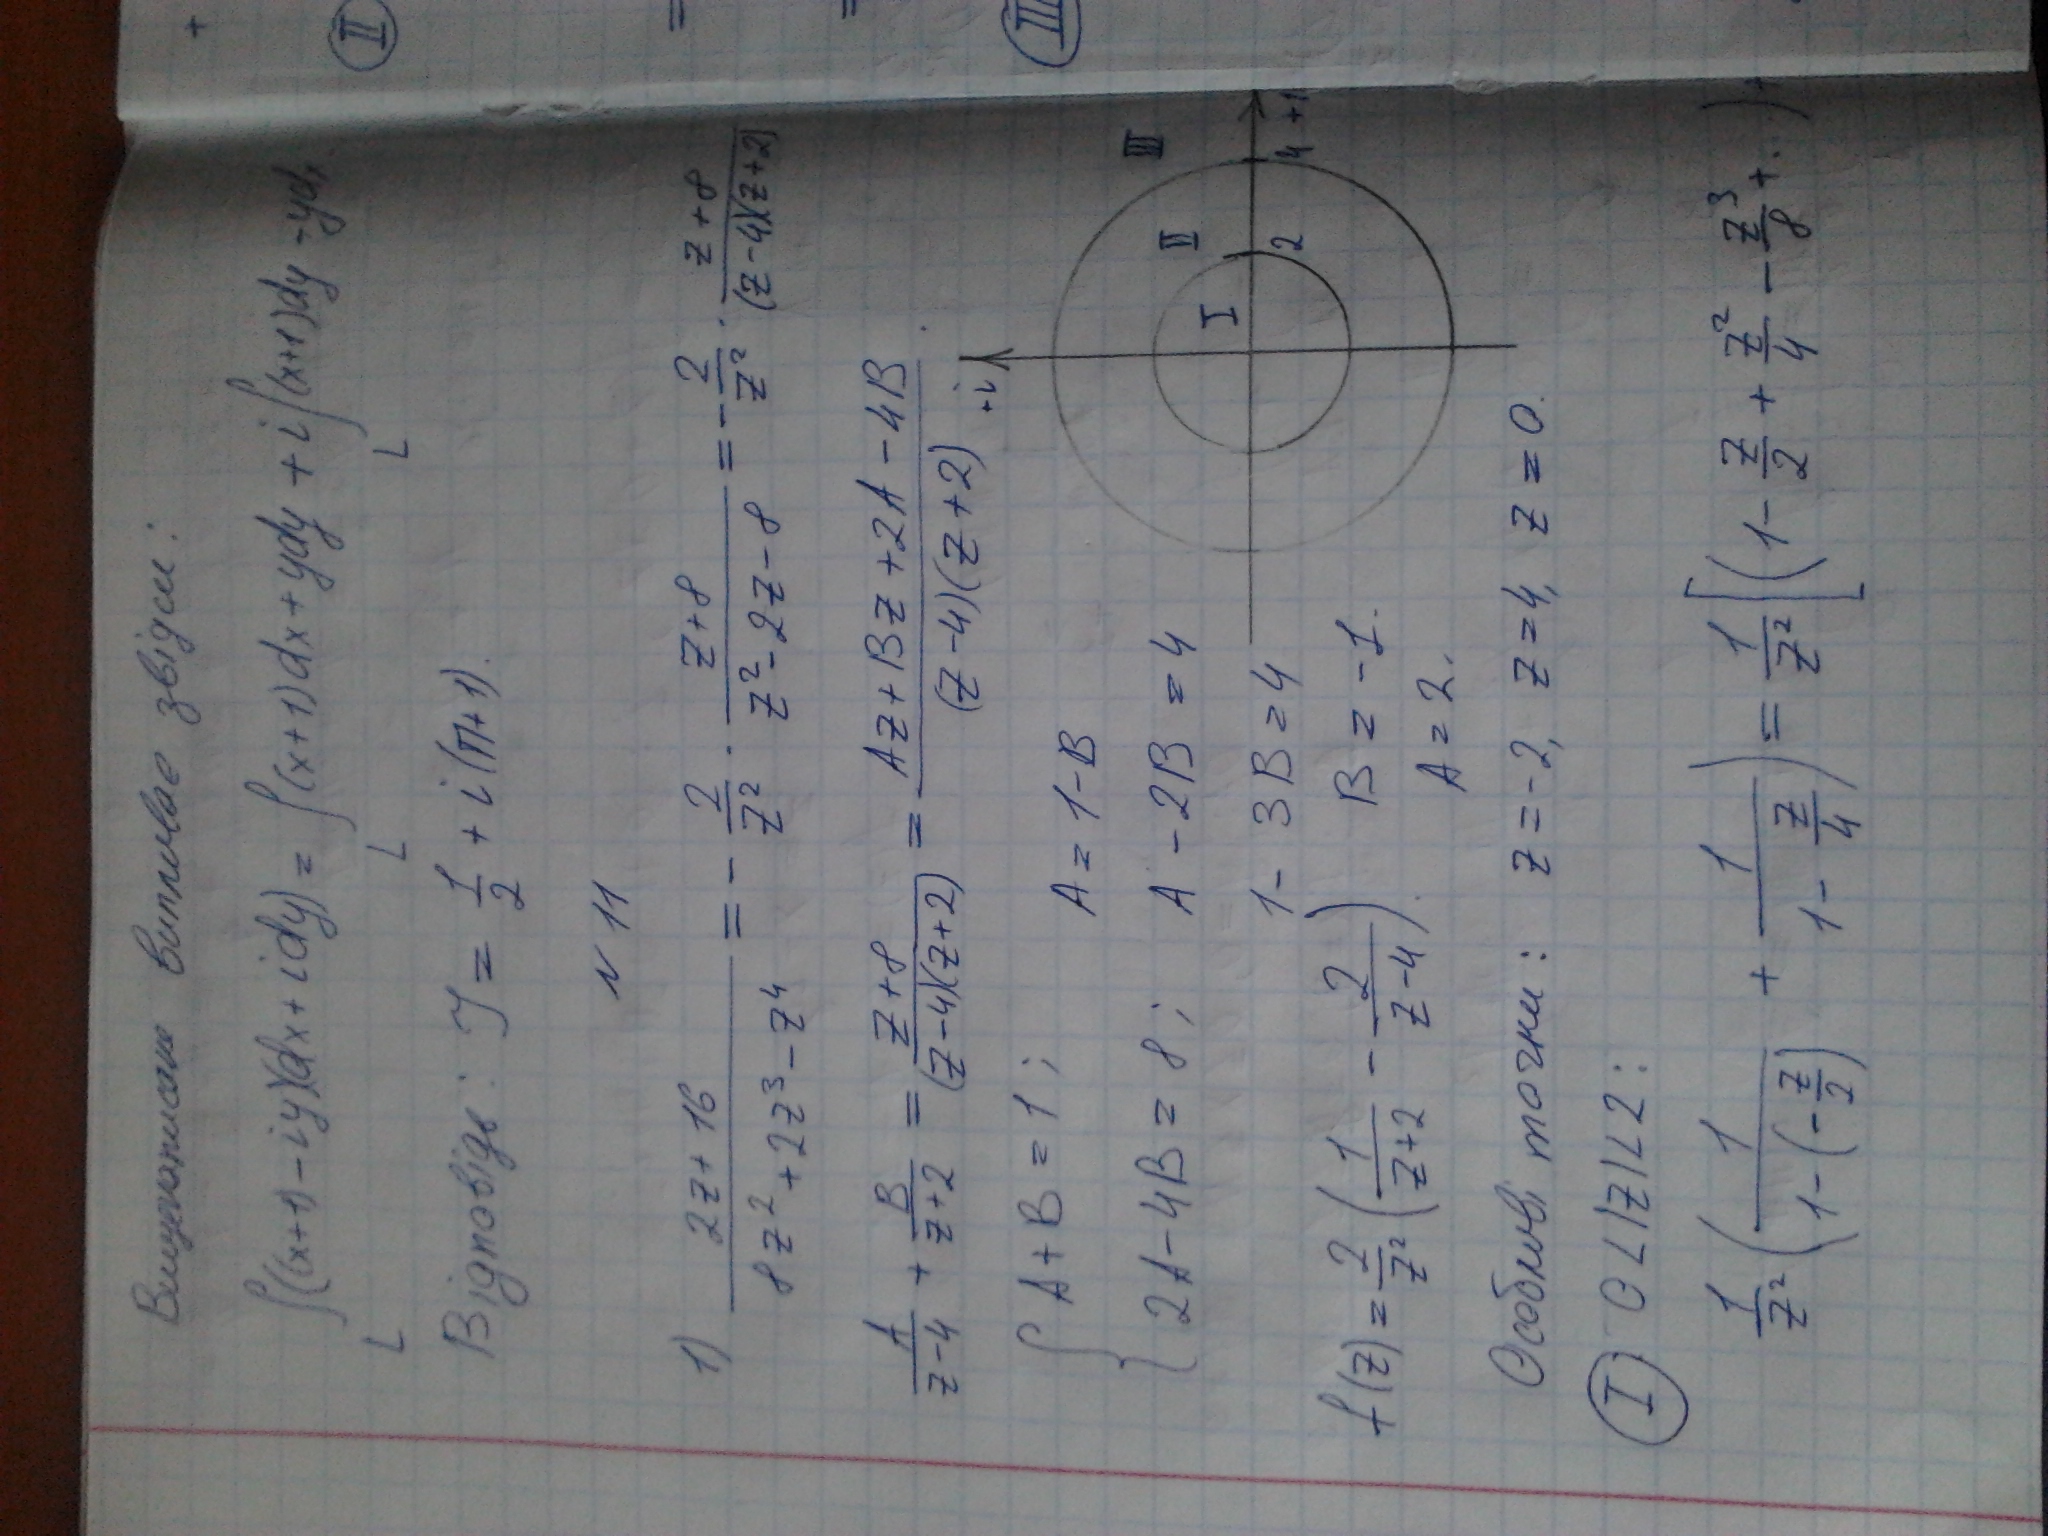 Вищенаписане випливає звідси:
∫((x+1)-iy)(dx+idy) = ∫(x+1)dx+ydy + i∫(x+1)dy-yd
L L L
Відповідь: J = 1/2 + i(π+1).
N 11
1) (2z+16)/(8z²+2z³-z⁴) = -2/z² · (z+8)/(z²-2z-8) = -2/z² · (z+8)/((z-4)(z+2))
A/(z-4) + B/(z+2) = (z+8)/((z-4)(z+2)) = (Az+Bz+2A-4B)/((z-4)(z+2)).
+i
{ A+B=1; A=1-B
2A-4B=8; A-2B=4
I II III
2 4 +1
1-3B=4
f(z) = 2/z² (1/(z+2) - 2/(z-4)). B=-1.
A=2.
Особливі точки: z=-2, z=4, z=0.
I 0<|z|<2:
1/z² (1/(1-(-z/2)) + 1/(1-z/4)) = 1/z² [(1 - z/2 + z²/4 - z³/8 + ...) +
+
II
=
=
III